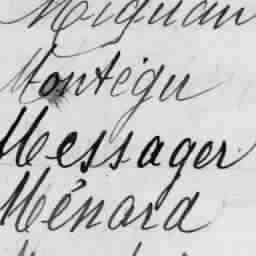 Montégu
Messager
Ménard